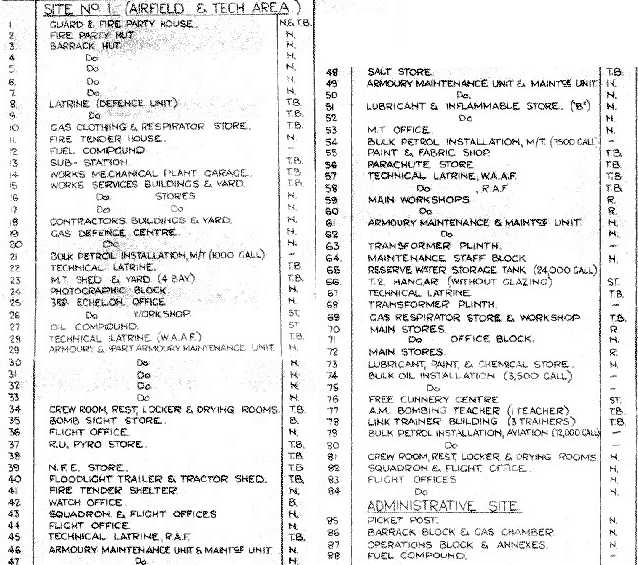 SITE Nº 1. (AIRFIELD & TECH AREA)
1 GUARD & FIRE PARTY HOUSE. N.& T.B.
2 FIRE PARTY HUT N.
3 BARRACK HUT. N.
4 Do N.
5 Do N.
6 Do N.
7 Do N.
8 LATRINE (DEFENCE UNIT) T.B.
9 Do T.B.
10 GAS CLOTHING & RESPIRATOR STORE. T.B.
11 FIRE TENDER HOUSE. N.
12 FUEL COMPOUND —
13 SUB-STATION T.B.
14 WORKS MECHANICAL PLANT GARAGE. T.B.
15 WORKS SERVICES BUILDINGS & YARD. T.B.
16 Do STORES N.
17 Do Do N.
18 CONTRACTORS BUILDINGS & YARD. N.
19 GAS DEFENCE CENTRE. N.
20 Do N.
21 BULK PETROL INSTALLATION, M/T (1000 GALL) —
22 TECHNICAL LATRINE. T.B.
23 M.T. SHED & YARD (4 BAY) T.B.
24 PHOTOGRAPHIC BLOCK. N.
25 ECHELON OFFICE N.
26 Do WORKSHOP ST.
27 OIL COMPOUND. ST.
28 TECHNICAL LATRINE (W.A.A.F.) T.B.
29 ARMOURY & PART ARMOURY MAINTENANCE UNIT N.
30 Do N.
31 Do N.
32 Do N.
33 Do N.
34 CREW ROOM, REST, LOCKER & DRYING ROOMS. T.B.
35 BOMB SIGHT STORE. B.
36 FLIGHT OFFICE. N.
37 R.U. PYRO STORE. T.B.
38 T.B.
39 N.F.E. STORE. T.B.
40 FLOODLIGHT TRAILER & TRACTOR SHED. T.B.
41 FIRE TENDER SHELTER N.
42 WATCH OFFICE B.
43 SQUADRON & FLIGHT OFFICES N.
44 FLIGHT OFFICE N.
45 TECHNICAL LATRINE, R.A.F. T.B.
46 ARMOURY MAINTENANCE UNIT & MAINTCE UNIT N.
47 Do N.
48 SALT STORE. T.B.
49 ARMOURY MAINTENANCE UNIT & MAINTCE UNIT N.
50 Do. N.
51 LUBRICANT & INFLAMMABLE STORE. ("B") N.
52 Do N.
53 M.T. OFFICE. N.
54 BULK PETROL INSTALLATION, M/T. (7500 GALL) —
55 PAINT & FABRIC SHOP T.B.
56 PARACHUTE STORE T.B.
57 TECHNICAL LATRINE, W.A.A.F. T.B
58 Do , R.A.F T.B.
59 MAIN WORKSHOPS R.
60 Do R.
61 ARMOURY MAINTENANCE & MAINTCE UNIT N.
62 Do N.
63 TRANSFORMER PLINTH. —
64 MAINTENANCE STAFF BLOCK N.
65 RESERVE WATER STORAGE TANK (24,000 GALL)
66 T.2. HANGAR (WITHOUT GLAZING) ST.
67 TECHNICAL LATRINE T.B.
68 TRANSFORMER PLINTH. —
69 GAS RESPIRATOR STORE & WORKSHOP T.B.
70 MAIN STORES. R.
71 Do OFFICE BLOCK. N.
72 MAIN STORES. R.
73 LUBRICANT, PAINT, & CHEMICAL STORE. N.
74 BULK OIL INSTALLATION (3,500 GALL) —
75 Do —
76 FREE GUNNERY CENTRE ST.
77 A.M. BOMBING TEACHER (1 TEACHER) T.B.
78 LINK TRAINER BUILDING (3 TRAINERS) T.B.
79 BULK PETROL INSTALLATION, AVIATION (72,000 GALL) —
80 Do —
81 CREW ROOM, REST, LOCKER & DRYING ROOMS N.
82 SQUADRON & FLIGHT OFFICE. N.
83 FLIGHT OFFICES N.
84 Do N.
ADMINISTRATIVE SITE
85 PICKET POST. N.
86 BARRACK BLOCK & GAS CHAMBER N.
87 OPERATIONS BLOCK & ANNEXES. N.
88 FUEL COMPOUND. —